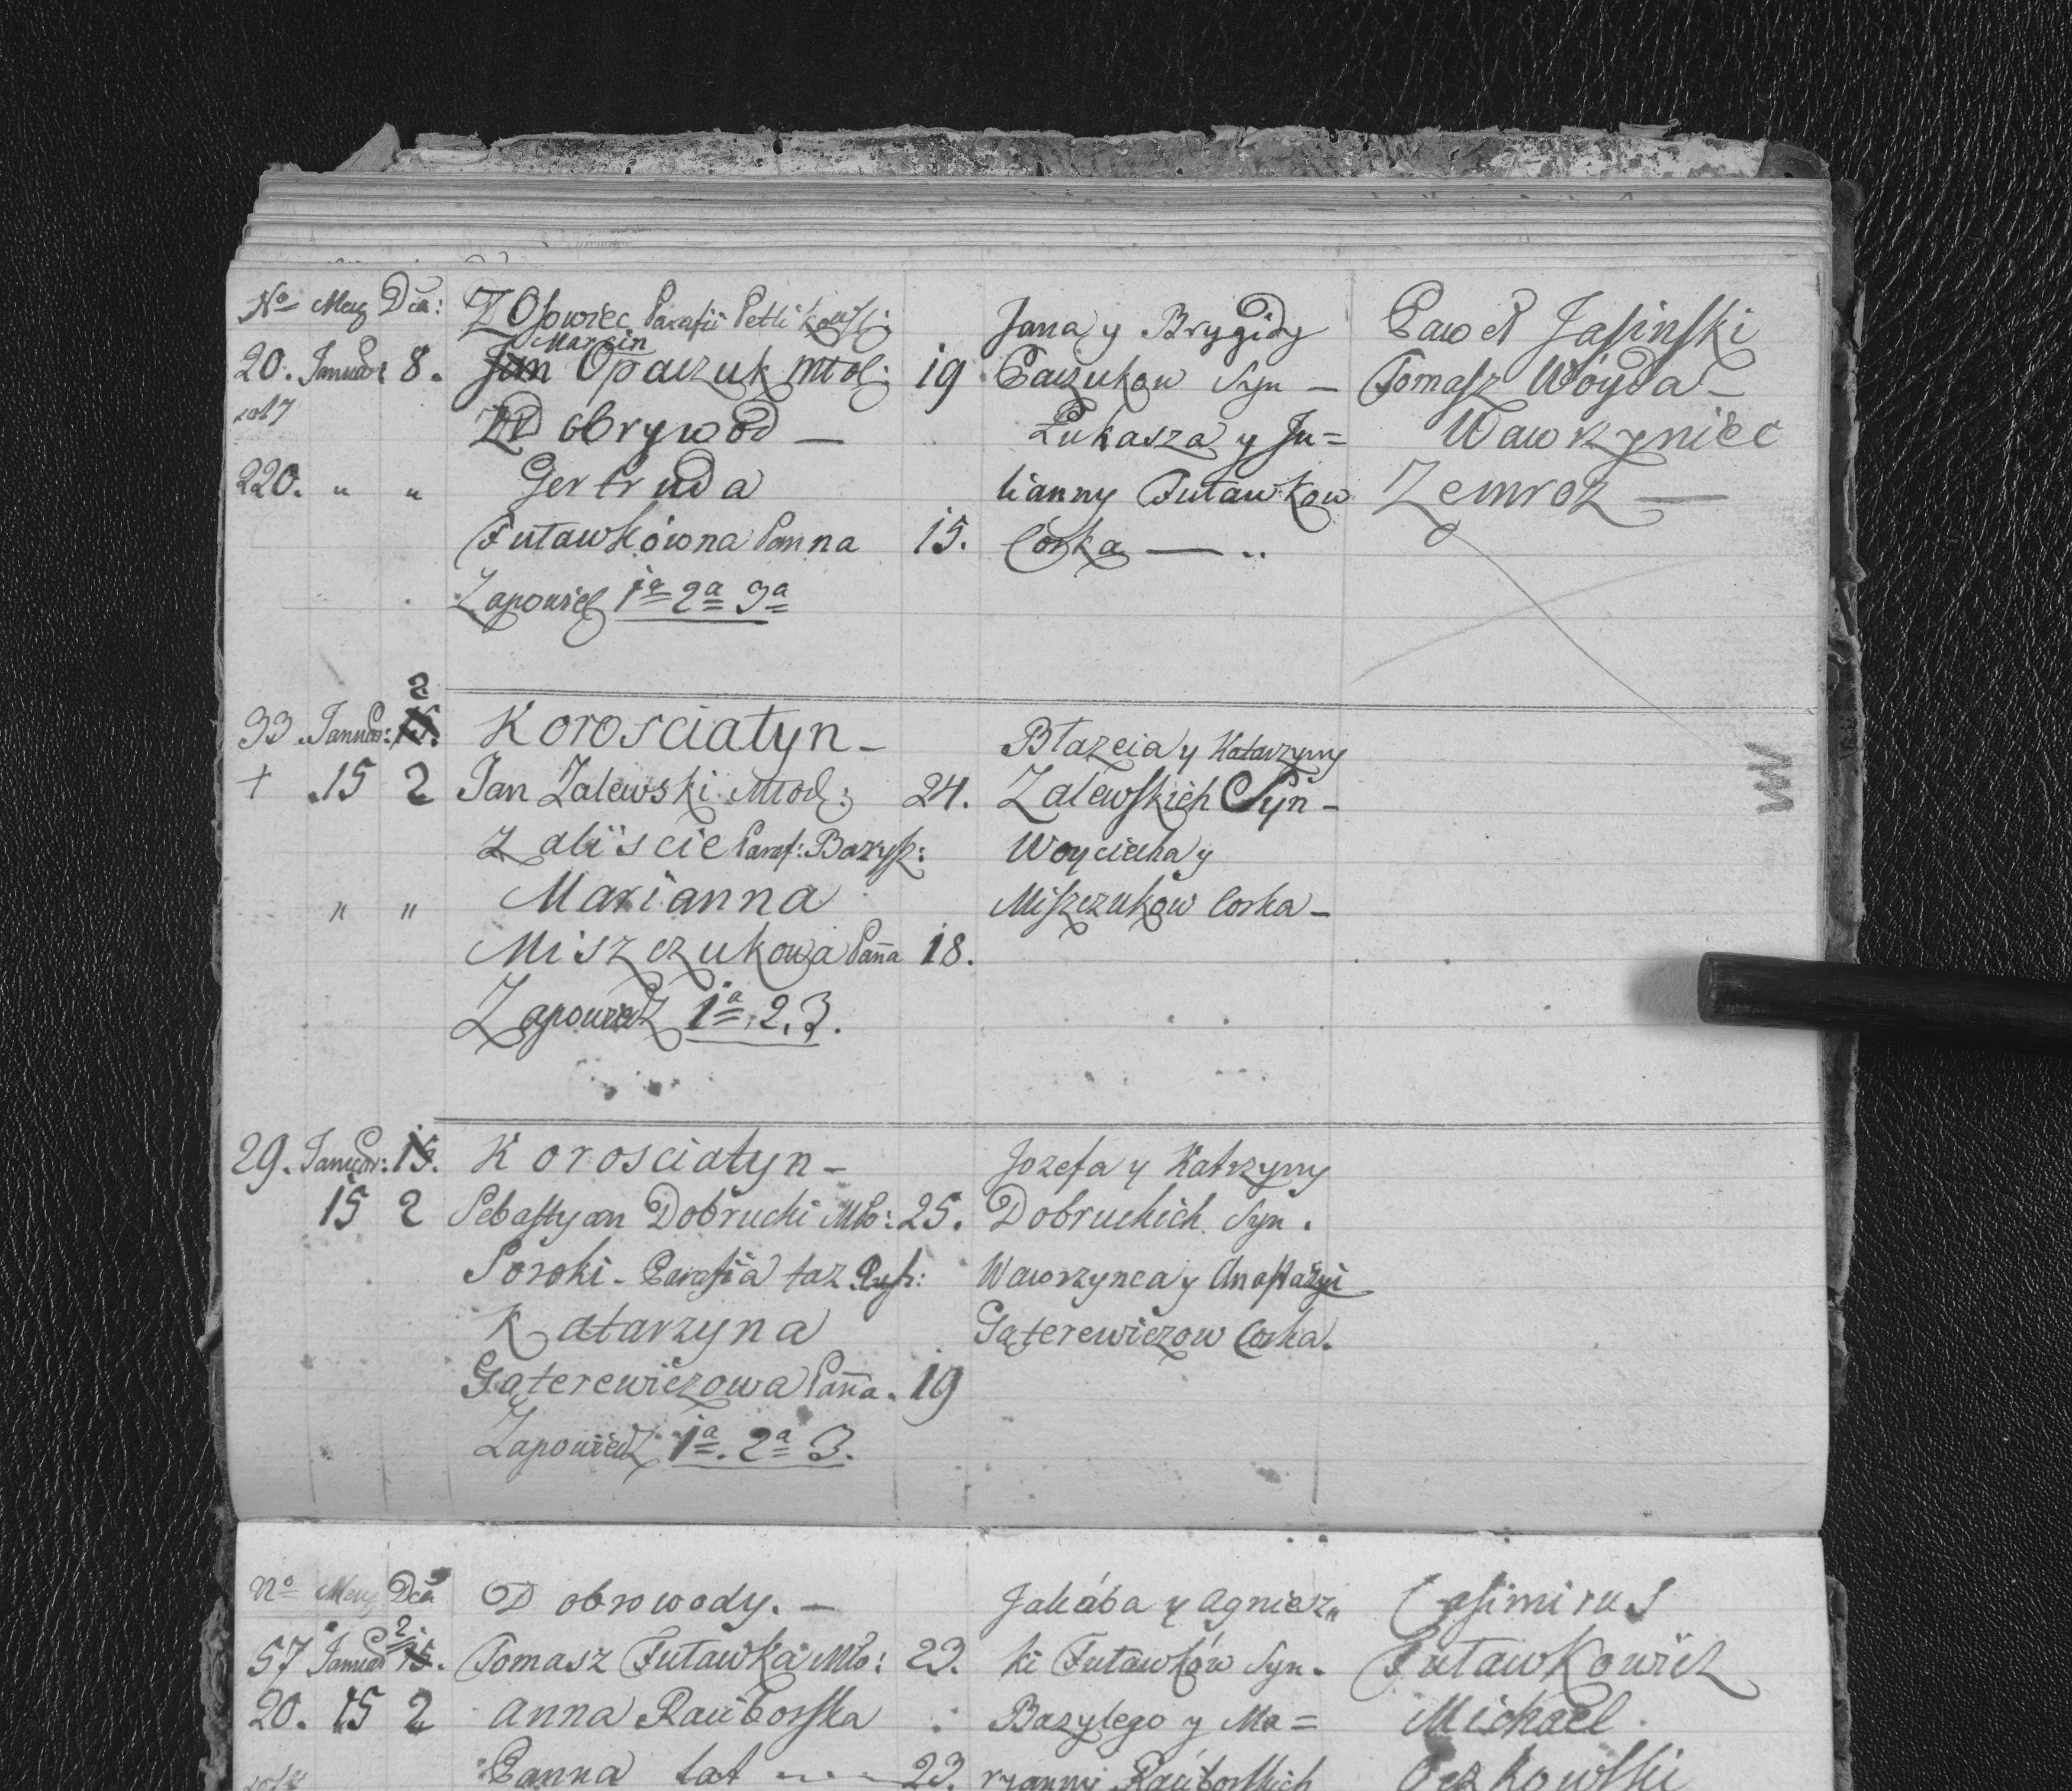 No Men Die: Z Osowiec Parafii Petlikowsk: Jana y Brygidy Paweł Jasinski
Marcin
20. Januar 8. Jan Opaczuk Młol: 19 Paczukow Syn — Tomasz Woyda —
Z Dobrywod — Łukasza y Ju= Wawrzyniec
220. " " Gertruda lianny Futawkow Zemroz —
Futawkówna Panna 15. Corka — "
Zapowiedz 1a 2a 3a
2
33. Januar: 15. Korosciatyn — Błazeia y Katarzyny
+ .15 2 Jan Zalewski Młod: 24. Zalewskich Syn —
Z aliiscie Paraf: Barysz: Woyciecha y
" " Marianna Miszczukow Corka —
Miszczukowa Pañna 18.
Zapowiedz 1a. 2. 3.
29. Januar: 15. Korosciatyn — Jozefa y Katrzyny
15 2 Sebastyan Dobrucki Mło: 25. Dobruckich Syn.
Soroki — Parafia taz Wawrzynca y Anastazyi
Katarzyna Gąterewiczow Corka.
Gąterewiczowa Pañna. 19
Zapowiedz 1a. 2a 3.
No Men Die Dobrowody. — Jakóba y Agniesz„ Casimirus
2.
57 Januar 15. Tomasz Futawka Mło: 23. ki Futawków Syn. Futawkowicz
20. 15 2 Anna Raciborska : Bazylego y Ma= Michael
Panna lat — 23. ryanny Raciborskich Oczkowski